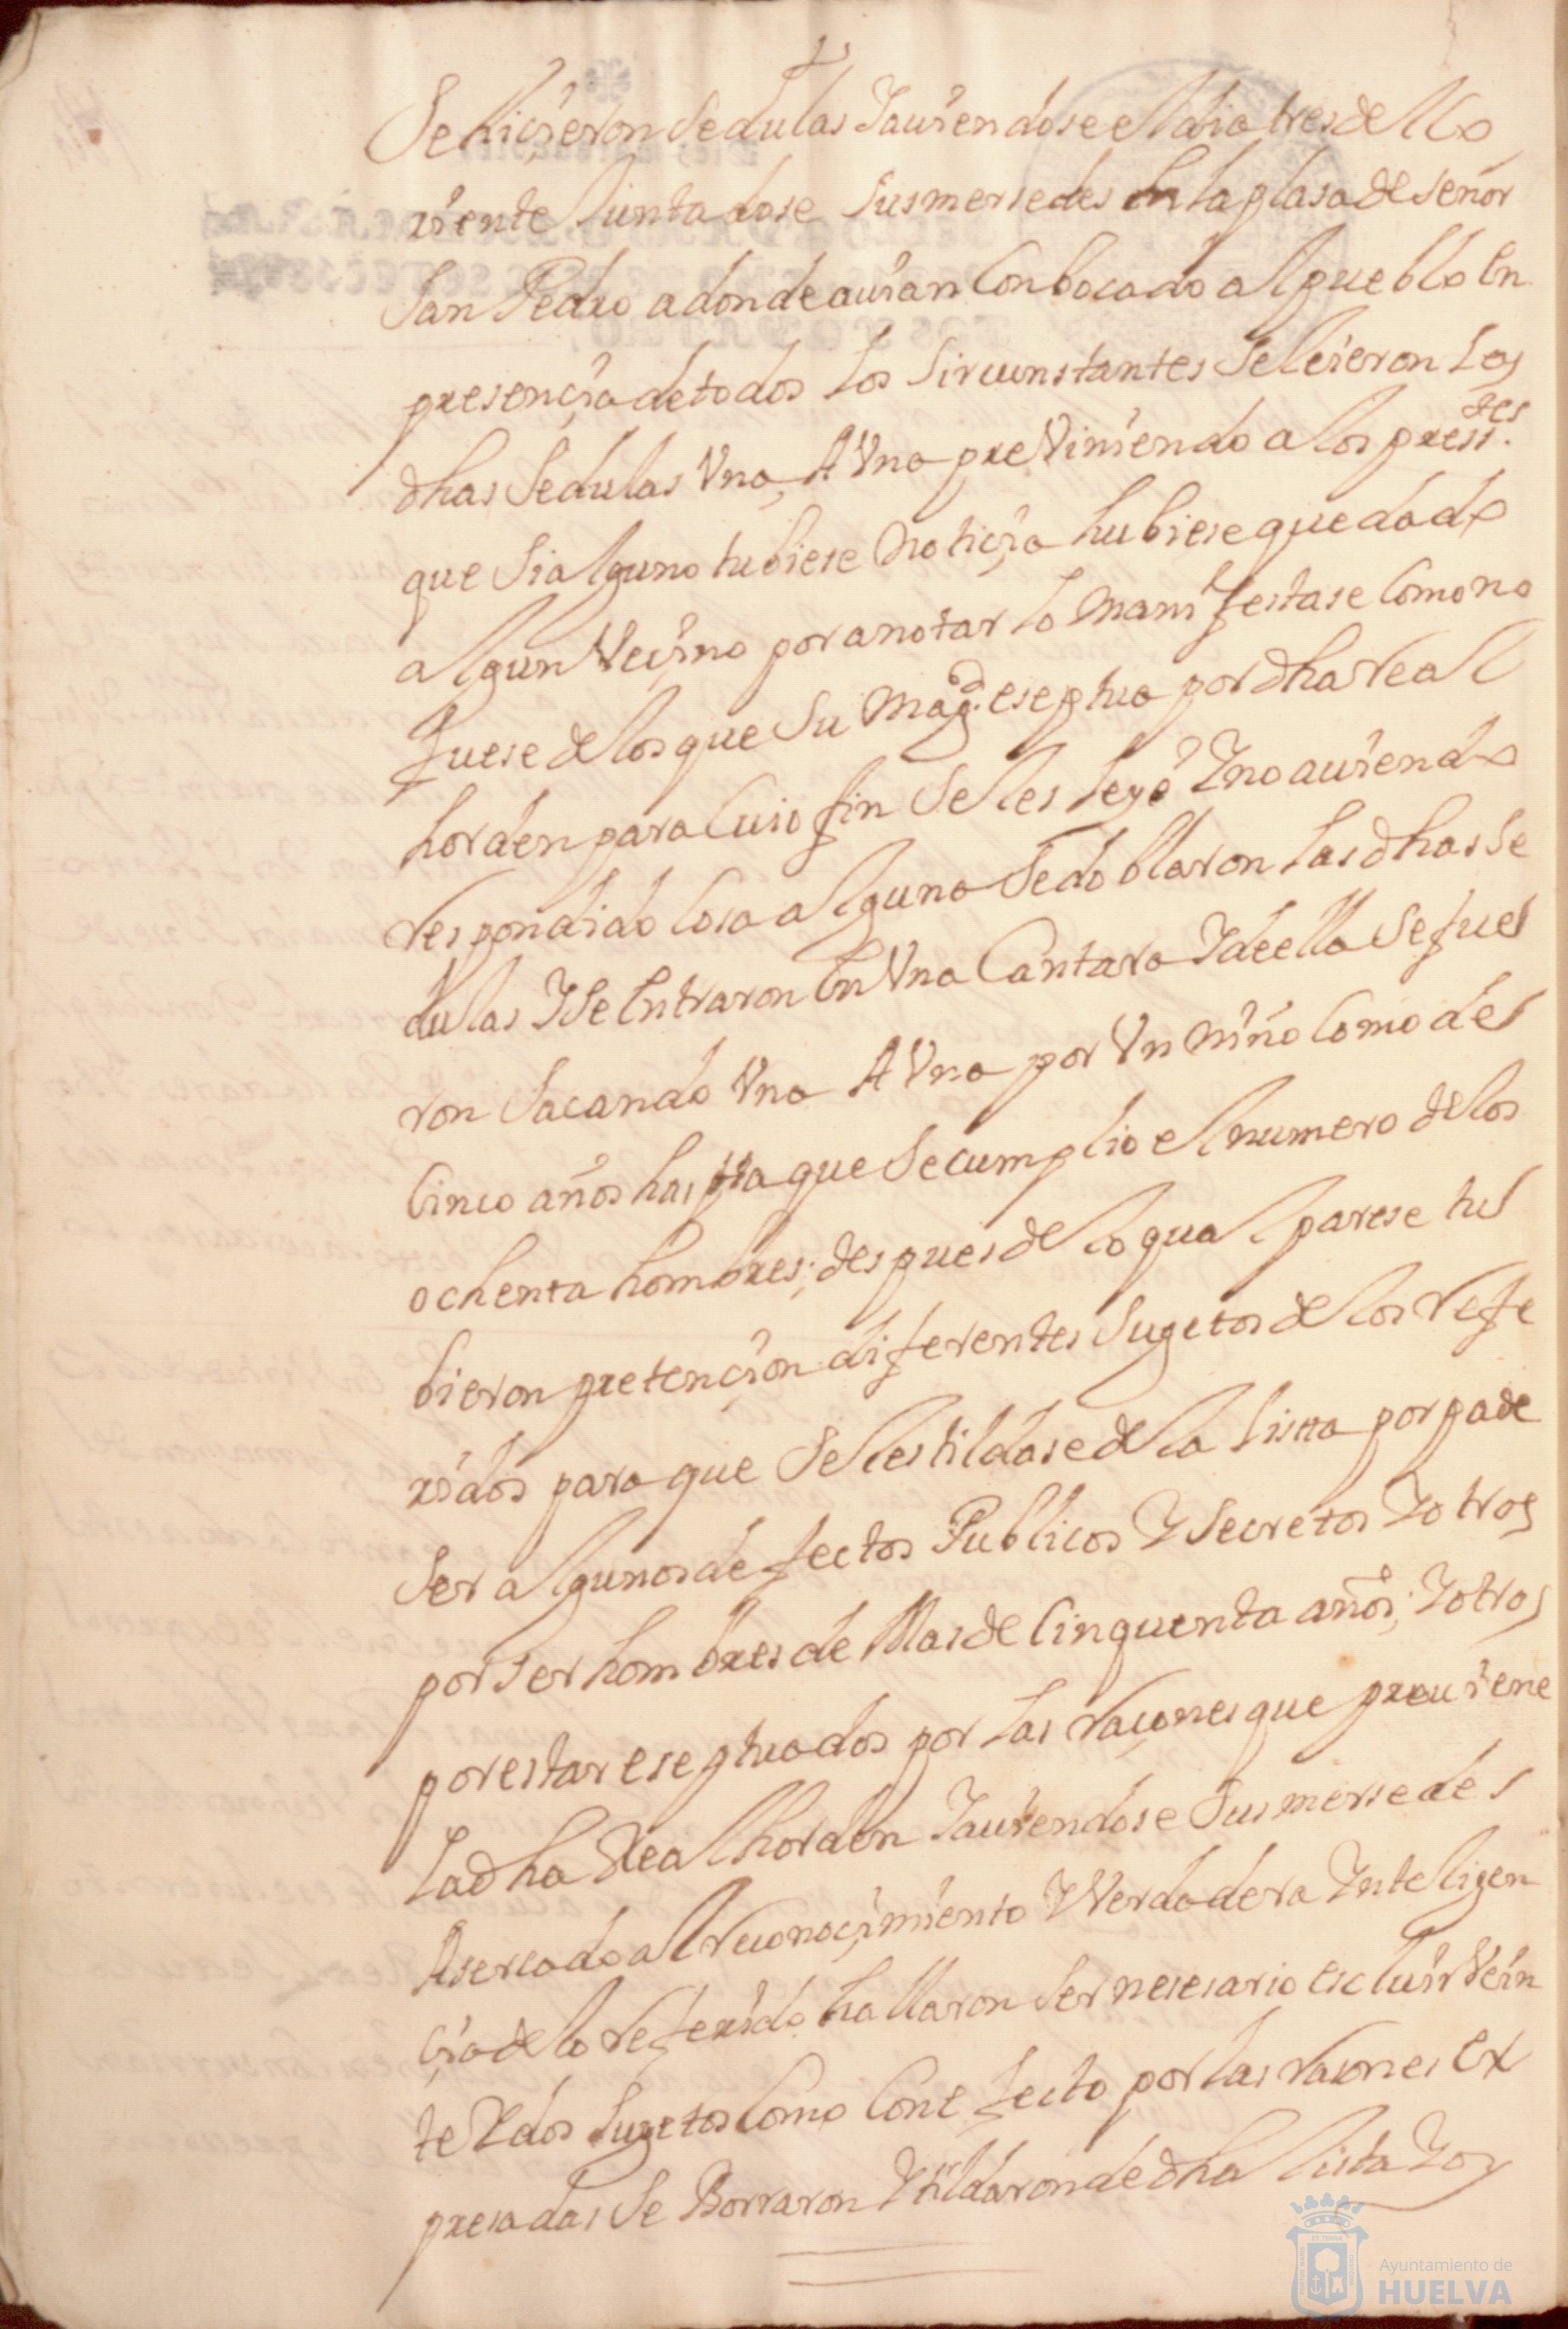 Se hiçieron Sedulas Y auiendose el dia tres del Co
riente Juntadose Sus mersedes En la plasa de Señor
San Pedro adonde auian Conbocado al pueblo En
presençia de todos los Sircunstantes Se leieron las
dhas Sedulas Vna A Vna preViniendo a los press.tes
que Si alguno tubiese Notiçia hubiese quedado
algun Veçino por anotar lo Manifestase Como no
fuese de los que Su Magd. eseptua por dha real
horden para Cuio fin Se les leyó Y no auiendo
respondido Cosa alguna Se doblaron las dhas Se
dulas Y Se Entraron En Vna Cantara Y de ella Se fue
ron Sacando Vna A Vna por Vn niño Como de
Cinco años hastta que Se cumplio el numero de los
ochenta hombres; despues de lo qual parese tu
bieron pretençion diferentes Sugetos de los refe
ridos para que Se les tildase de la listta por pade
Ser algunos defectos Publicos Y Secretos Y otros
por Ser hombres de Mas de Cinquenta años; Y otros
por estar eseptuados por las raçones que preuiene
La dha Real horden Y auiendose Sus mersedes
Asercado al reconoçimiento Y Verdadera Ynteligen
çia de lo referido hallaron Ser nesesario escluir Vein
te Y dos Sugetos Como Con efecto por las rasones Ex
presadas Se Borraron Y tildaron de dha lista Y oy
Ayuntamiento de
HUELVA